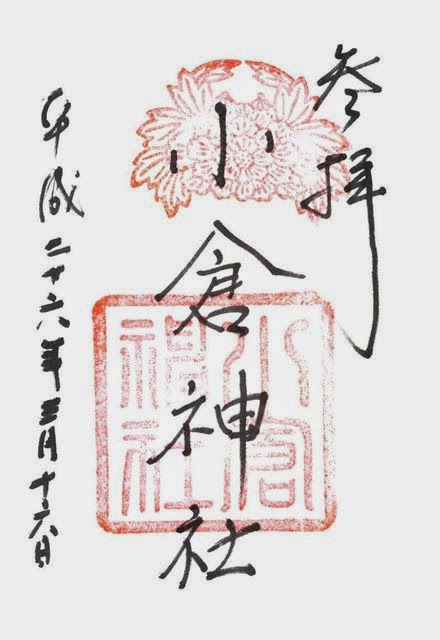 参拝
小倉神社
小倉
神社
平成二十六年三月十六日